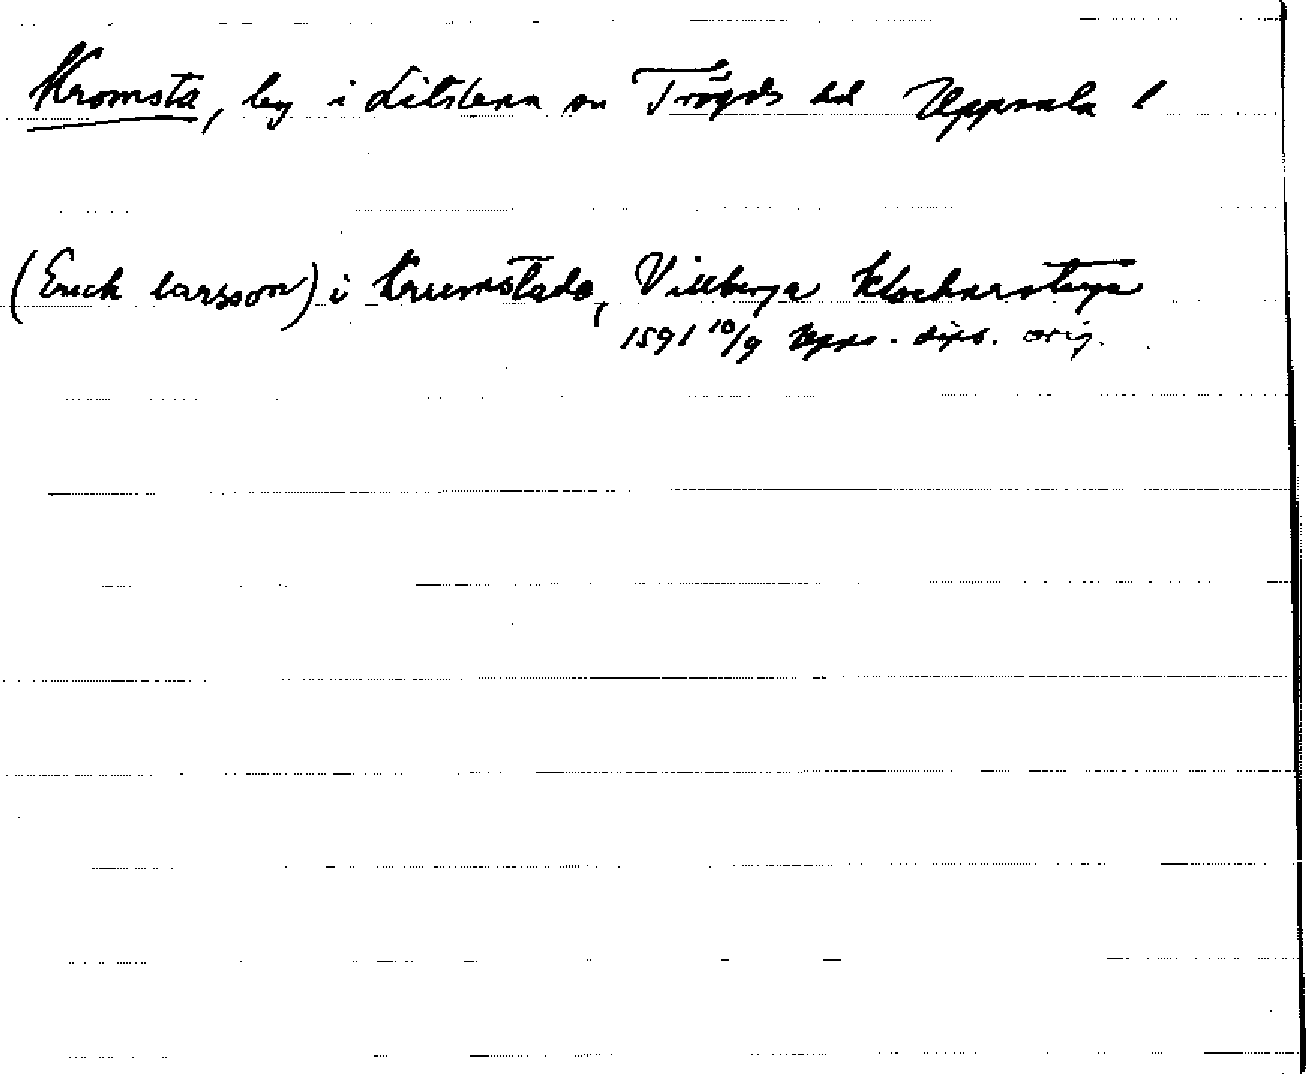 Kromsta, by i Litslena sn Trögds hd Uppsala l
(Erich larsson) i Krumstada, Villberga
1591 10/9 Upps. dipl. orig.